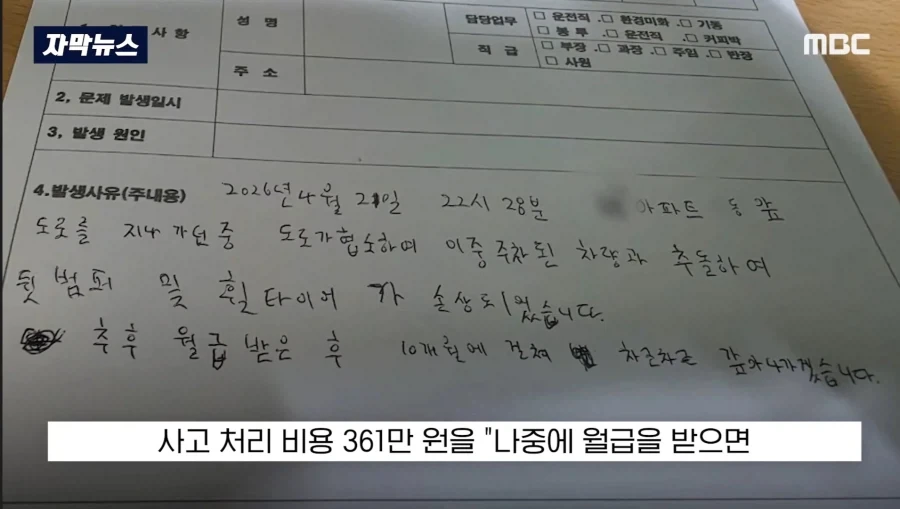 자막뉴스
MBC
사 항
성 명
담당업무
□ 운전직 .□ 환경미화 .□ 기동
□ 봉 투 .□ 운전직 .□ 커피박
직 급
□ 부장 .□ 과장 .□ 주임 .□ 반장
□ 사원
주 소
2, 문제 발생일시
3, 발생 원인
4.발생사유(주내용) 2026년 4월 21일 22시 28분 아파트 동 앞
도로를 지나 가던 중 도로가 협소하여 이중주차된 차량과 추돌하여
뒷 범퍼 및 휠타이어 가 손상되었습니다.
추후 월급 받은 후 10개월에 걸쳐 차근차근 갚아나가겠습니다.
사고 처리 비용 361만 원을 "나중에 월급을 받으면